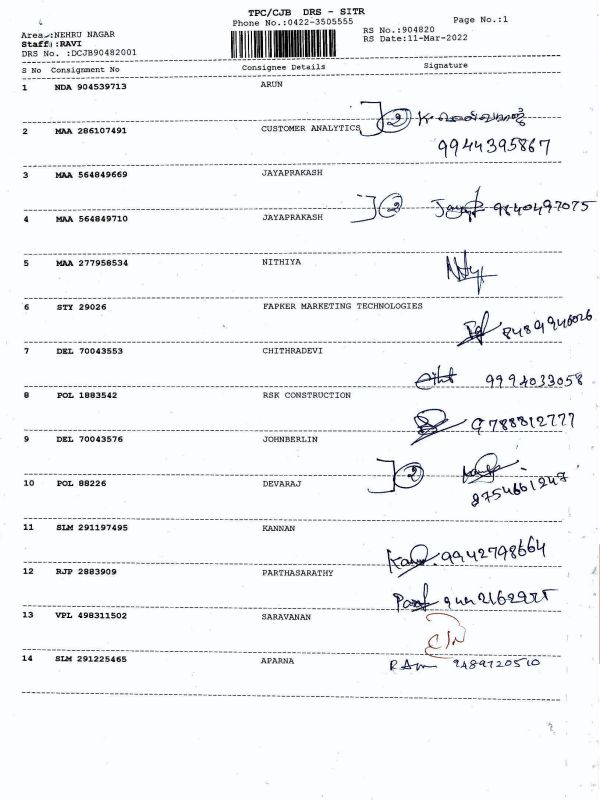 TPC/CJB DRS - SITR
Phone No.:0422-3505555 Page No.:1
Area :NEHRU NAGAR RS No.:904820
Staff :RAVI RS Date:11-Mar-2022
DRS No. :DCJB90482001
S No Consignment No Consignee Details Signature
1 NDA 904539713 ARUN
2 MAA 286107491 CUSTOMER ANALYTICS 2
9944395867
3 MAA 564849669 JAYAPRAKASH
4 MAA 564849710 JAYAPRAKASH 2 9840497075
5 MAA 277958534 NITHIYA
6 STY 29026 FAPKER MARKETING TECHNOLOGIES
7 DEL 70043553 CHITHRADEVI
9994033058
8 POL 1883542 RSK CONSTRUCTION
9788812777
9 DEL 70043576 JOHNBERLIN
10 POL 88226 DEVARAJ 2
8754661247
11 SLM 291197495 KANNAN
9942798664
12 RJP 2883909 PARTHASARATHY
13 VPL 498311502 SARAVANAN
14 SLM 291225465 APARNA 9489720510